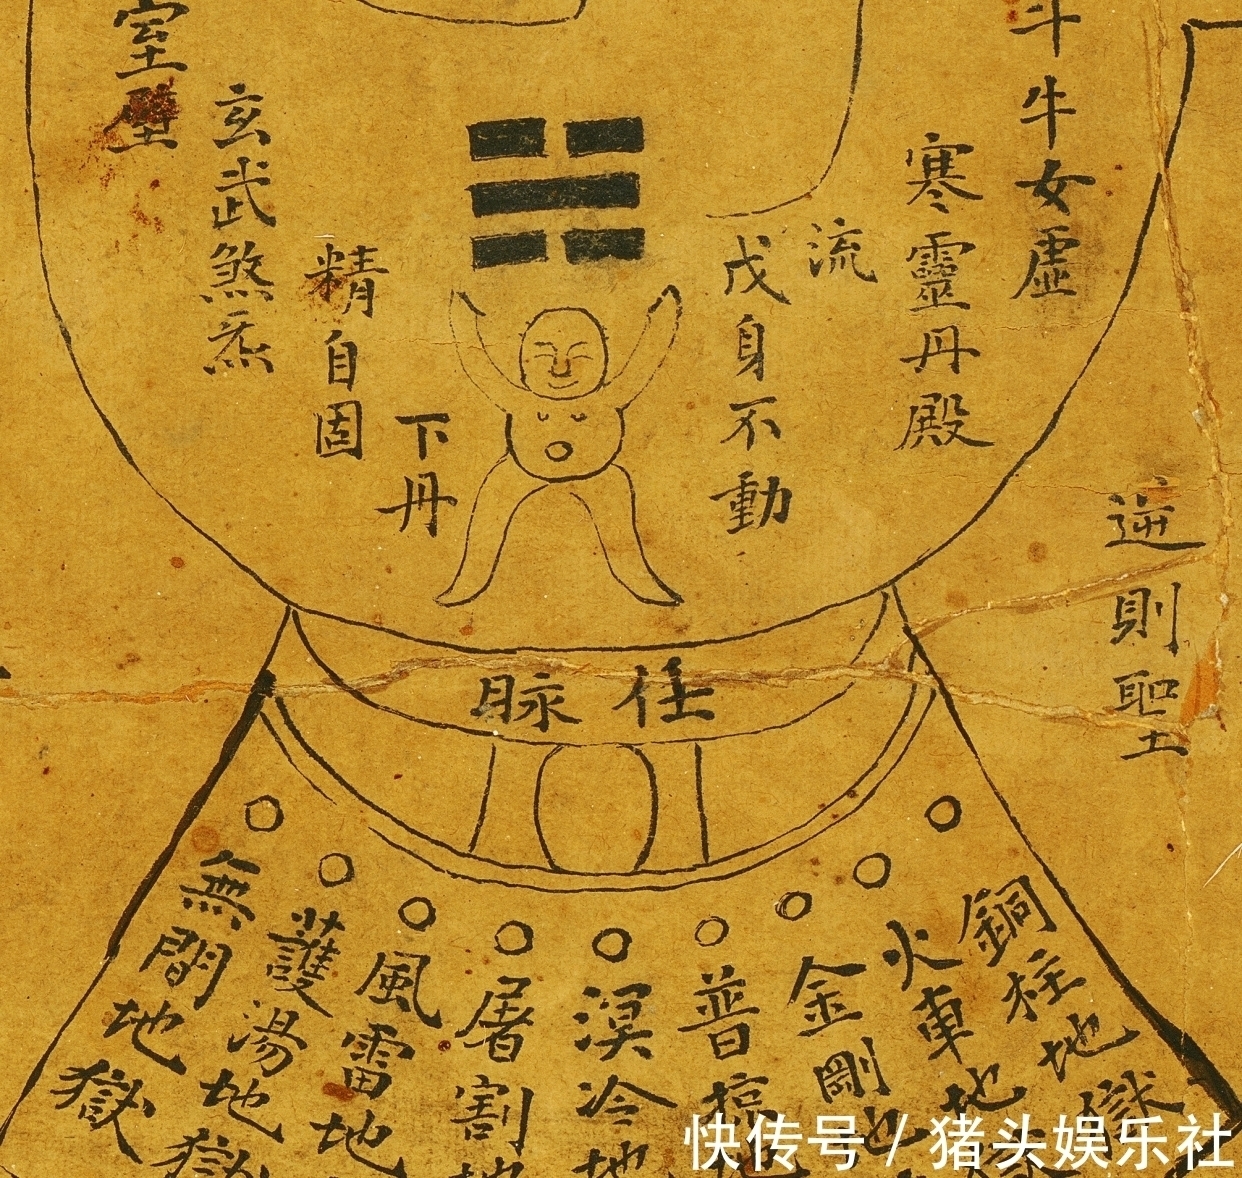 斗牛女虛
寒靈丹殿
流
戊身不動
下丹
精自固
玄武煞炁
室壁
逆則聖
任脉
銅柱地獄
火車地獄
金剛地
普掠地
溟冷地
屠割地
風雷地
護湯地獄
無間地獄
快传号/猪头娱乐社